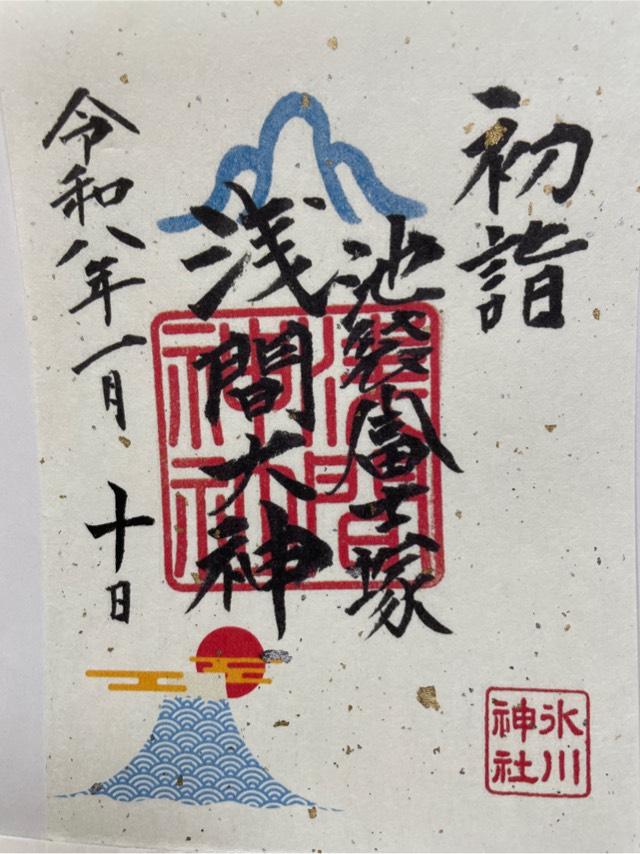 初詣
池袋富士塚
浅間大神
令和八年一月十日
浅間神社
氷川神社